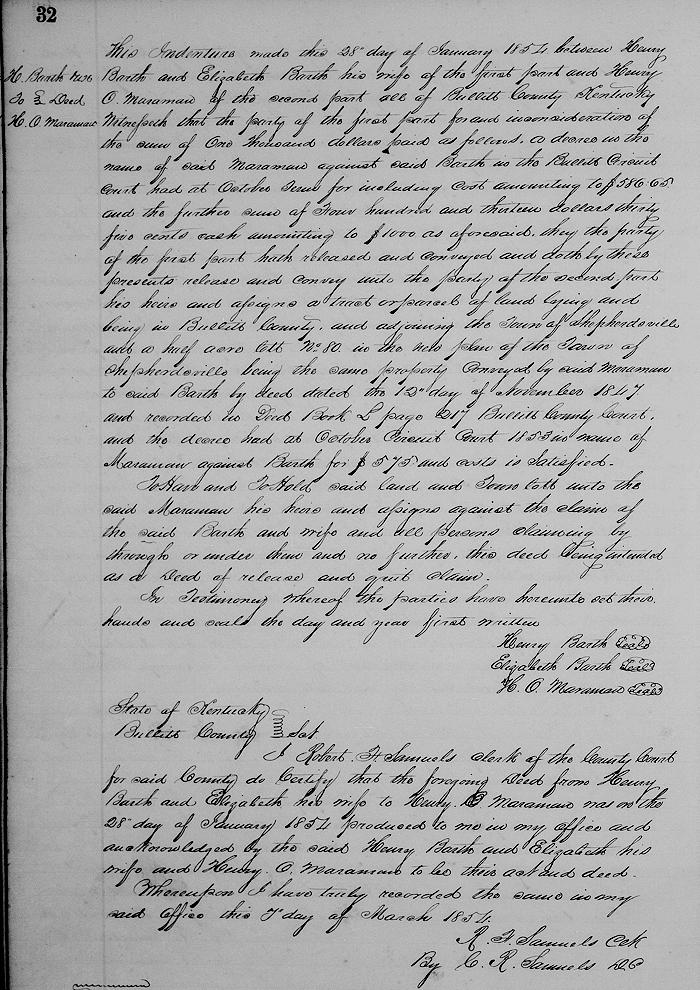 32
This Indenture made this 28" day of January 1854 between Henry
H. Barth &c
Barth and Elizabeth Barth his wife of the first part and Henry
To } Deed
O. Maraman of the second part all of Bullitt County Kentucky
H. O. Maraman
Witnesseth that the party of the first part for and in consideration of
the sum of One thousand dollars paid as follows. a decree in the
name of said Maraman against said Barth in the Bullitt Circuit
Court had at October Term for including cost amounting to $586.65
and the further sum of Four hundred and thirteen dollars thirty
five cents cash amounting to $1000 as aforesaid, they the party
of the first part hath released and conveyed and doth by these
presents release and convey unto the party of the second part
his heirs and assigns a tract or parcel of land lying and
being in Bullitt County. and adjoining the Town of Shepherdsville
and a half acre lott No 80. in the new plan of the Town of
Shepherdsville being the same property conveyed by said Maraman
to said Barth by deed dated the 12" day of November 1847
and recorded in Deed Book L page 217 Bullitt County Court.
and the decree had at October Circuit Court 1853 in name of
Maraman against Barth for $575 and costs is satisfied.
To Have and To Hold said land and Town lott unto the
said Maraman his heirs and assigns against the claim of
the said Barth and wife and all persons claiming by
through or under them and no further. this deed being intended
as a Deed of release and quit claim.
In Testimony whereof the parties have hereunto set their
hands and seals the day and year first written
Henry Barth Seal
Elizabeth Barth Seal
H. O. Maraman Seal
State of Kentucky
Bullitt County } Sct
I Robert. F. Samuels Clerk of the County Court
for said County do Certify that the foregoing Deed from Henry
Barth and Elizabeth his wife to Henry. O Maraman was on the
28" day of January 1854 produced to me in my office and
acknowledged by the said Henry Barth and Elizabeth his
wife and Henry. O. Maraman to be their act and deed.
Whereupon I have truly recorded the same in my
said office this 7" day of March 1854
R. F. Samuels Clk
By C. R. Samuels DC